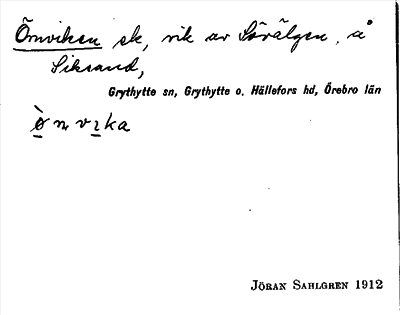 Örnviken ek, vik av Sörälgen, å
Siksand,
Grythytte sn, Grythytte o. Hällefors hd, Örebro län
ø̀nvıka
Jöran Sahlgren 1912